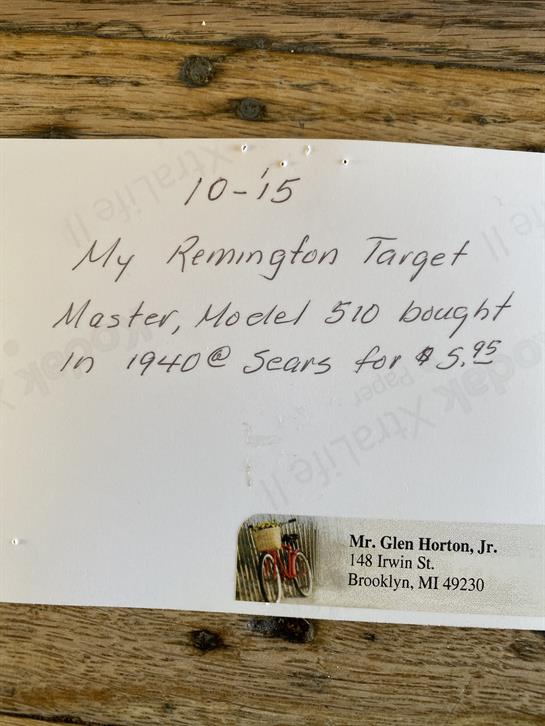 10-'15
My Remington Target
Master, Model 510 bought
In 1940 @ Sears for $5.95
Kodak XtraLife II
Paper
Mr. Glen Horton, Jr.
148 Irwin St.
Brooklyn, MI 49230